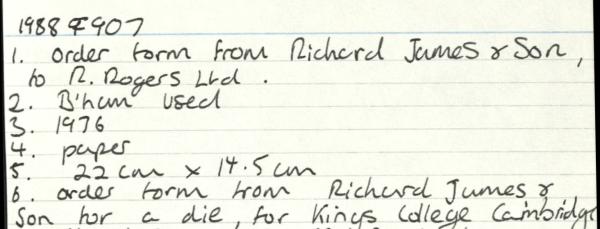 1988 F907
1. order form from Richard James & Son,
to R. Rogers Ltd.
2. B'ham used
3. 1976
4. paper
5. 22 cm x 14.5 cm
6. order form from Richard James &
Son for a die, for Kings College Cambridge